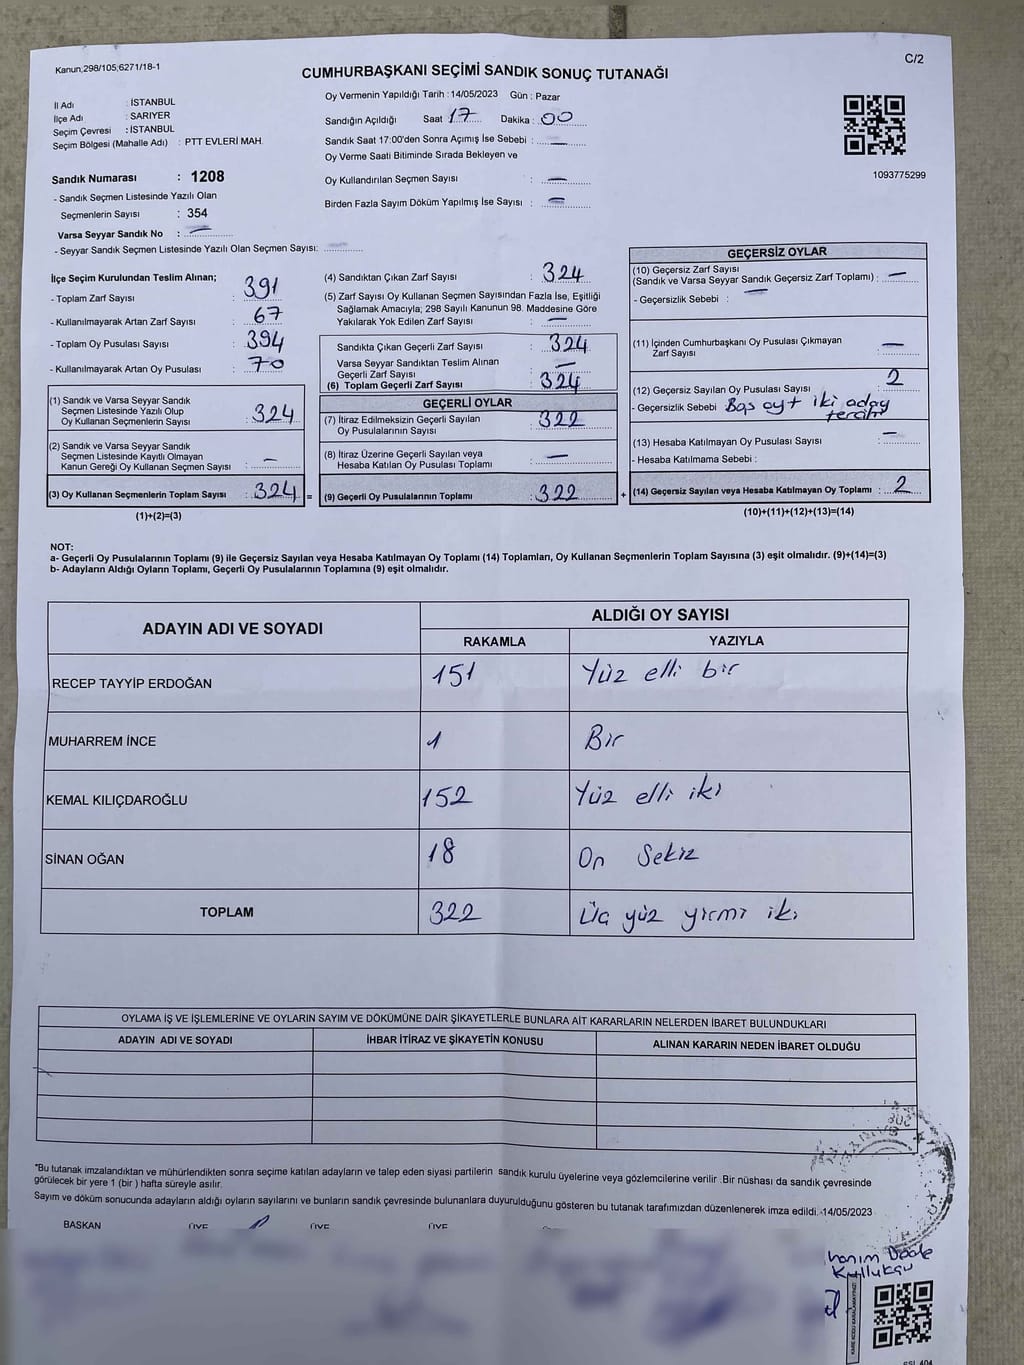 Kanun;298/105;6271/18-1
C/2
CUMHURBAŞKANI SEÇİMİ SANDIK SONUÇ TUTANAĞI
İl Adı : İSTANBUL
İlçe Adı : SARIYER
Seçim Çevresi : İSTANBUL
Seçim Bölgesi (Mahalle Adı) : PTT EVLERİ MAH.
Sandık Numarası : 1208
- Sandık Seçmen Listesinde Yazılı Olan
Seçmenlerin Sayısı : 354
Varsa Seyyar Sandık No : —
- Seyyar Sandık Seçmen Listesinde Yazılı Olan Seçmen Sayısı: —
Oy Vermenin Yapıldığı Tarih : 14/05/2023 Gün : Pazar
Sandığın Açıldığı Saat 17 Dakika : 00
Sandık Saat 17:00'den Sonra Açımış İse Sebebi : —
Oy Verme Saati Bitiminde Sırada Bekleyen ve
Oy Kullandırılan Seçmen Sayısı : —
Birden Fazla Sayım Döküm Yapılmış İse Sayısı : —
1093775299
İlçe Seçim Kurulundan Teslim Alınan;
- Toplam Zarf Sayısı : 391
- Kullanılmayarak Artan Zarf Sayısı : 67
- Toplam Oy Pusulası Sayısı : 394
- Kullanılmayarak Artan Oy Pusulası : 70
(1) Sandık ve Varsa Seyyar Sandık
Seçmen Listesinde Yazılı Olup
Oy Kullanan Seçmenlerin Sayısı : 324
(2) Sandık ve Varsa Seyyar Sandık
Seçmen Listesinde Kayıtlı Olmayan
Kanun Gereği Oy Kullanan Seçmen Sayısı : —
(3) Oy Kullanan Seçmenlerin Toplam Sayısı : 324 =
(1)+(2)=(3)
(4) Sandıktan Çıkan Zarf Sayısı : 324
(5) Zarf Sayısı Oy Kullanan Seçmen Sayısından Fazla İse, Eşitliği
Sağlamak Amacıyla; 298 Sayılı Kanunun 98. Maddesine Göre
Yakılarak Yok Edilen Zarf Sayısı : —
Sandıkta Çıkan Geçerli Zarf Sayısı : 324
Varsa Seyyar Sandıktan Teslim Alınan
Geçerli Zarf Sayısı : —
(6) Toplam Geçerli Zarf Sayısı : 324
GEÇERLİ OYLAR
(7) İtiraz Edilmeksizin Geçerli Sayılan
Oy Pusulalarının Sayısı : 322
(8) İtiraz Üzerine Geçerli Sayılan veya
Hesaba Katılan Oy Pusulası Toplamı : —
(9) Geçerli Oy Pusulalarının Toplamı : 322 +
GEÇERSİZ OYLAR
(10) Geçersiz Zarf Sayısı
(Sandık ve Varsa Seyyar Sandık Geçersiz Zarf Toplamı) : —
- Geçersizlik Sebebi : —
(11) İçinden Cumhurbaşkanı Oy Pusulası Çıkmayan
Zarf Sayısı : —
(12) Geçersiz Sayılan Oy Pusulası Sayısı : 2
- Geçersizlik Sebebi Boş oyt iki aday
tercih
(13) Hesaba Katılmayan Oy Pusulası Sayısı : —
- Hesaba Katılmama Sebebi :
(14) Geçersiz Sayılan veya Hesaba Katılmayan Oy Toplamı : 2
(10)+(11)+(12)+(13)=(14)
NOT:
a- Geçerli Oy Pusulalarının Toplamı (9) ile Geçersiz Sayılan veya Hesaba Katılmayan Oy Toplamı (14) Toplamları, Oy Kullanan Seçmenlerin Toplam Sayısına (3) eşit olmalıdır. (9)+(14)=(3)
b- Adayların Aldığı Oyların Toplamı, Geçerli Oy Pusulalarının Toplamına (9) eşit olmalıdır.
ADAYIN ADI VE SOYADI
ALDIĞI OY SAYISI
RAKAMLA YAZIYLA
RECEP TAYYİP ERDOĞAN 151 Yüz elli bir
MUHARREM İNCE 1 Bir
KEMAL KILIÇDAROĞLU 152 Yüz elli iki
SİNAN OĞAN 18 On Sekiz
TOPLAM 322 Üç yüz yirmi iki
OYLAMA İŞ VE İŞLEMLERİNE VE OYLARIN SAYIM VE DÖKÜMÜNE DAİR ŞİKAYETLERLE BUNLARA AİT KARARLARIN NELERDEN İBARET BULUNDUKLARI
ADAYIN ADI VE SOYADI İHBAR İTİRAZ VE ŞİKAYETİN KONUSU ALINAN KARARIN NEDEN İBARET OLDUĞU
"Bu tutanak imzalandıktan ve mühürlendikten sonra seçime katılan adayların ve talep eden siyasi partilerin sandık kurulu üyelerine veya gözlemcilerine verilir .Bir nüshası da sandık çevresinde
görülecek bir yere 1 (bir ) hafta süreyle asılır.
Sayım ve döküm sonucunda adayların aldığı oyların sayılarını ve bunların sandık çevresinde bulunanlara duyurulduğunu gösteren bu tutanak tarafımızdan düzenlenerek imza edildi. 14/05/2023
BAŞKAN ÜYE ÜYE ÜYE